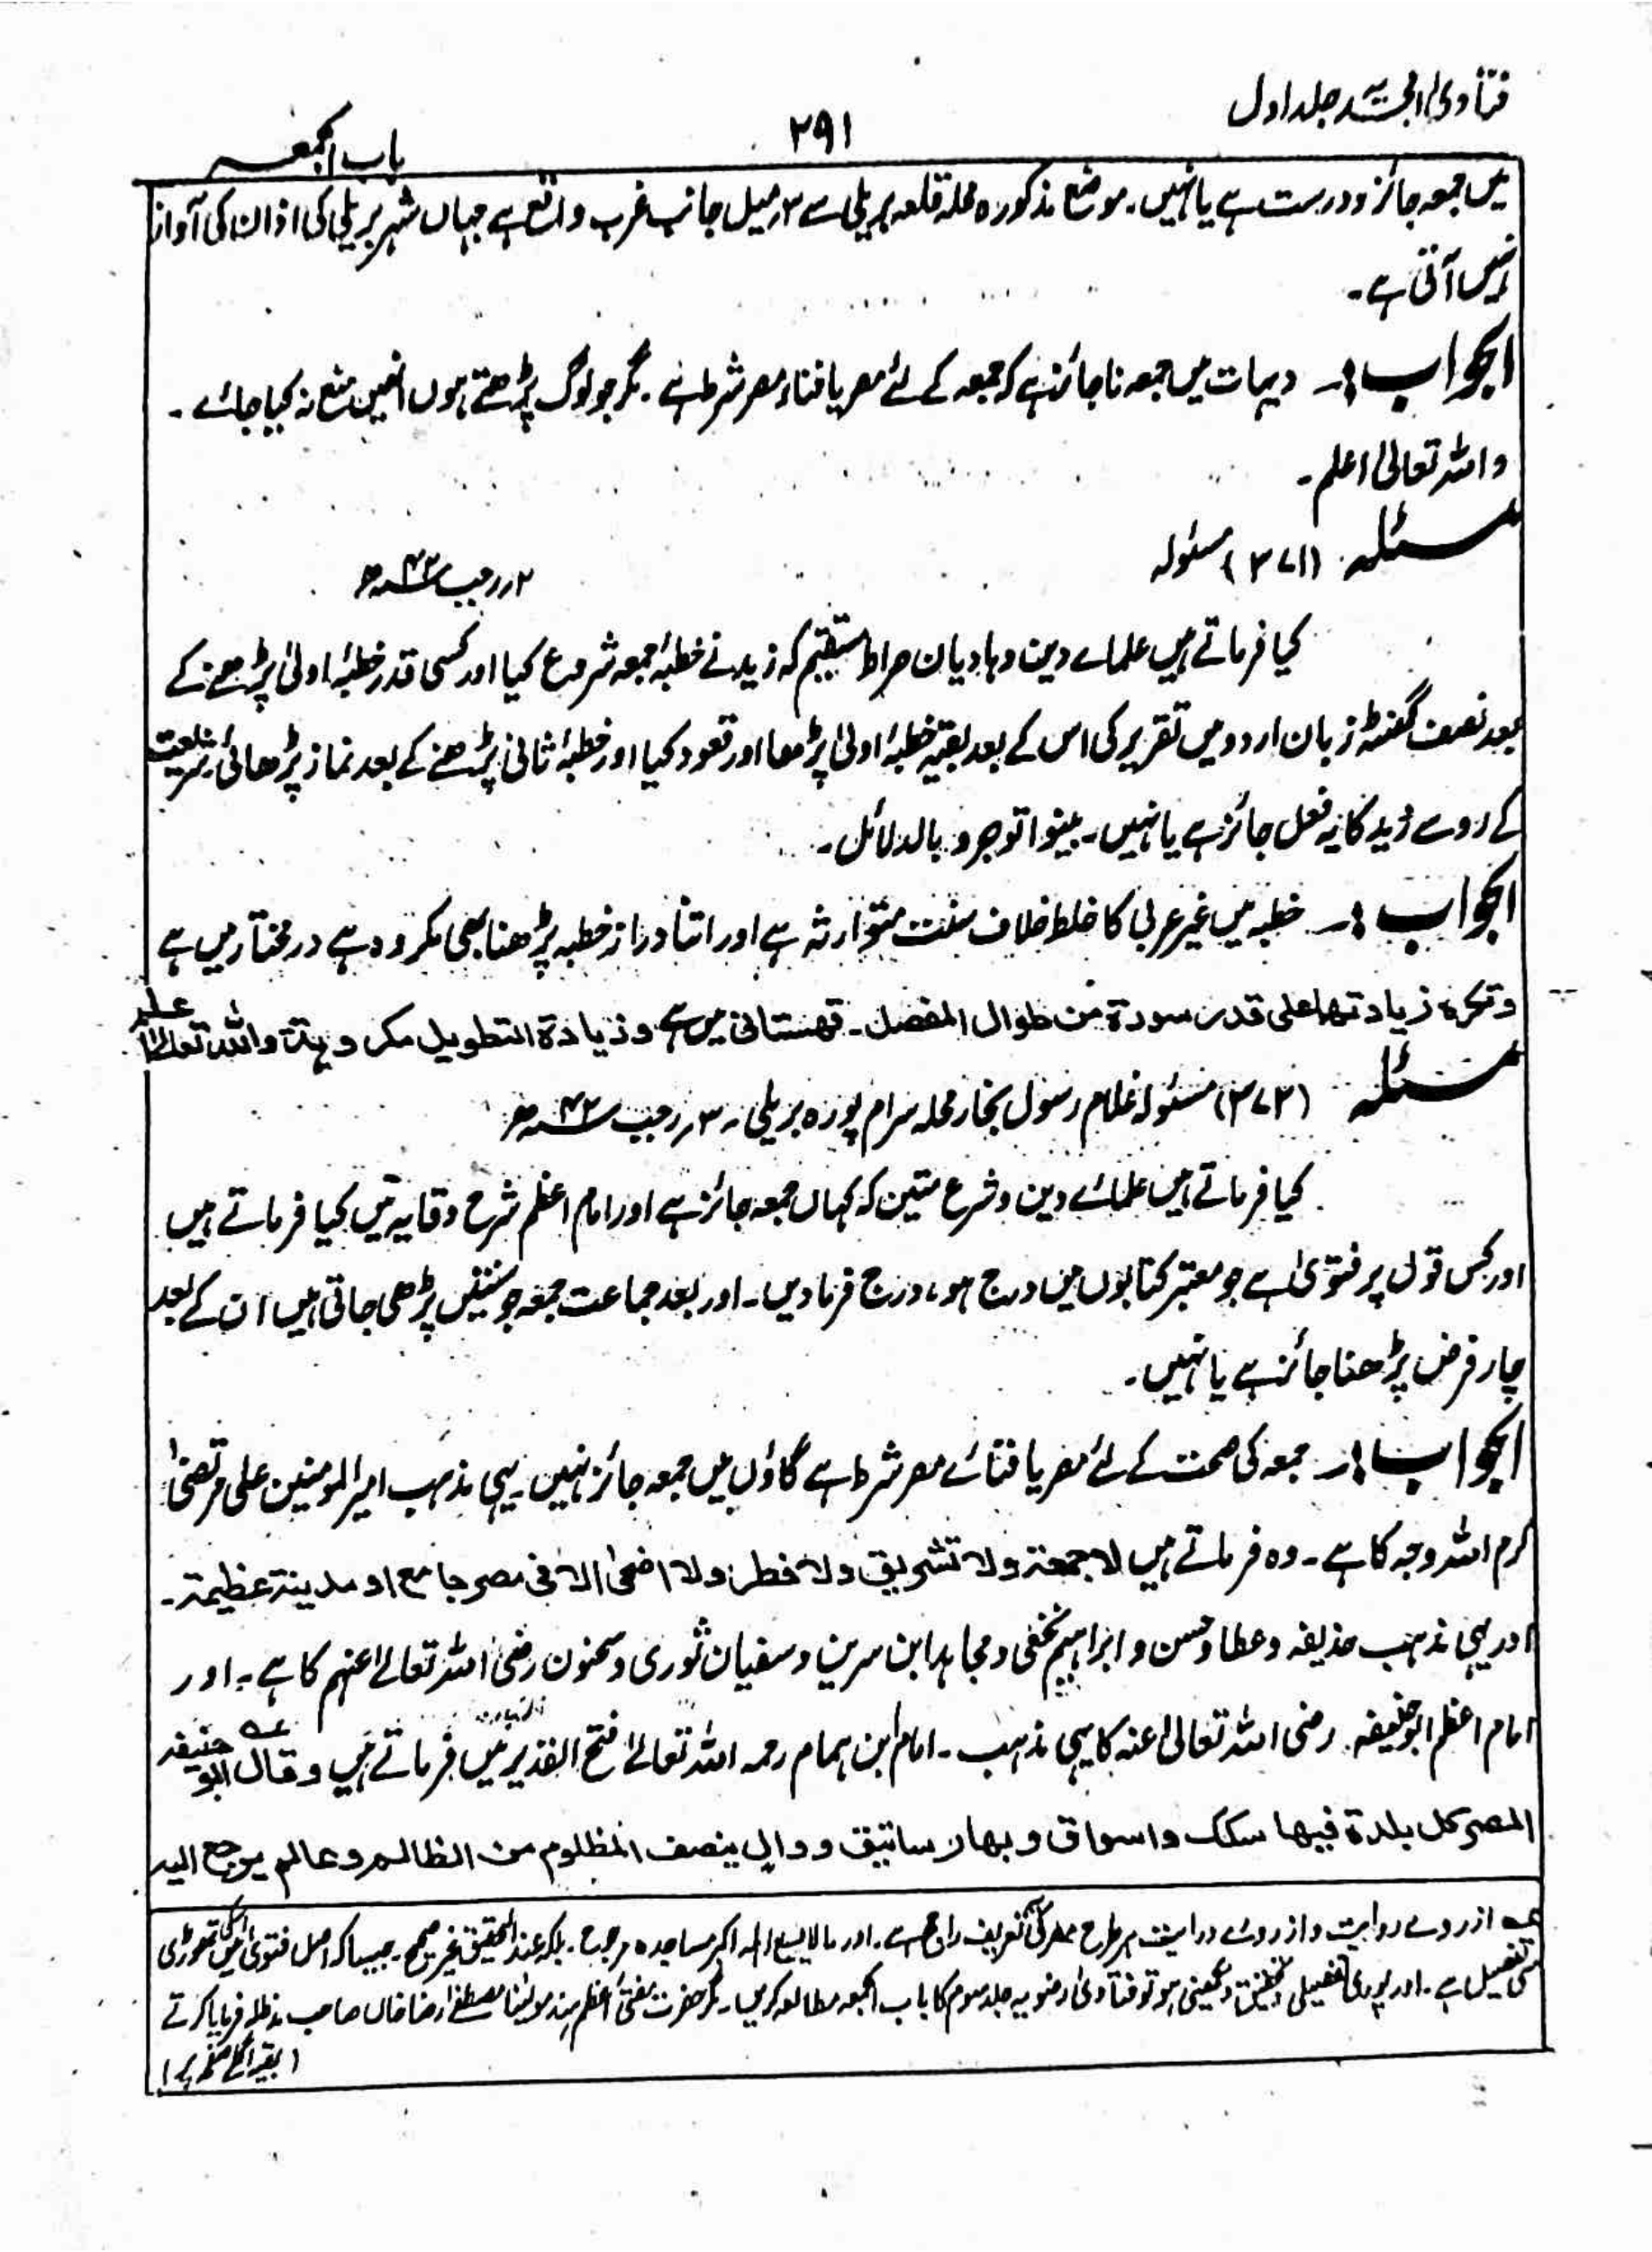 فتاویٰ امجدیہ جلد اول
۲۹۱
باب الجمعہ
میں جمعہ جائز و درست ہے یا نہیں۔ موضع مذکورہ محلہ قلعہ بریلی سے ۳ میل جانب غرب واقع ہے جہاں شہر بریلی کی اذان کی آواز
نہیں آتی ہے۔
الجواب :۔ دیہات میں جمعہ ناجائز ہے کہ جمعہ کے لئے مصر یا فناء مصر شرط ہے۔ مگر جو لوگ پڑھتے ہوں انھیں منع نہ کیا جائے۔
واللہ تعالیٰ اعلم۔
مسئلہ (۳۷۱) مسئولہ ۲؍رجب ۴۳ھ
کیا فرماتے ہیں علمائے دین وہادیان صراط مستقیم کہ زید نے خطبۂ جمعہ شروع کیا اور کسی قدر خطبۂ اولیٰ پڑھنے کے
بعد نصف گھنٹہ زبان اردو میں تقریر کی اس کے بعد بقیہ خطبۂ اولیٰ پڑھا اور قعود کیا اور خطبۂ ثانی پڑھنے کے بعد نماز پڑھائی شریعت
کے روسے زید کا یہ فعل جائز ہے یا نہیں۔ بینوا توجروا بالدلائل۔
الجواب :۔ خطبہ میں غیر عربی کا خلط خلاف سنت متوارثہ ہے اور اتنا دراز خطبہ پڑھنا بھی مکروہ ہے در مختار میں ہے
وتکرہ زیادتھا علی قدر سورۃ من طوال المفصل۔ قھستانی میں ہے وزیادۃ التطویل مکروھۃ واللہ تعالیٰ اعلم
مسئلہ (۳۷۲) مسئولہ غلام رسول نجار محلہ سرام پورہ بریلی۔ ۳؍رجب ۴۳ھ
کیا فرماتے ہیں علمائے دین وشرع متین کہ کہاں جمعہ جائز ہے اور امام اعظم شرح وقایہ میں کیا فرماتے ہیں
اور کس قول پر فتویٰ ہے جو معتبر کتابوں میں درج ہو، درج فرما دیں۔ اور بعد جماعت جمعہ جو سنتیں پڑھی جاتی ہیں ان کے بعد
چار فرض پڑھنا جائز ہے یا نہیں۔
الجواب :۔ جمعہ کی صحت کے لئے مصر یا فنائے مصر شرط ہے گاؤں میں جمعہ جائز نہیں۔ یہی مذہب امیر المومنین علی مرتضیٰ
کرم اللہ وجہ کا ہے۔ وہ فرماتے ہیں لا جمعۃ ولا تشریق ولا فطر ولا اضحیٰ الا فی مصر جامع او مدینۃ عظیمۃ۔
اور یہی مذہب حذیفہ وعطا وحسن وابراہیم نخعی ومجاہد ابن سرین وسفیان ثوری وسحنون رضی اللہ تعالےٰ عنہم کا ہے۔ اور
امام اعظم ابو حنیفہ رضی اللہ تعالیٰ عنہ کا یہی مذہب۔ امام ابن ہمام رحمہ اللہ تعالےٰ فتح القدیر میں فرماتے ہیں وقال ابو حنیفہ عہ
المصر کل بلدۃ فیھا سکک واسواق وبھا رساتیق ووالٍ ینصف المظلوم من الظالم وعالم یرجع الیہ
عہ ازروے روایت واز روئے درایت ہر طرح مصر کی تعریف راجح ہے۔ اور مالا یسع اہلہ اکبر مساجدہ مرجوح۔ بلکہ عند التحقیق غیر صحیح۔ جیسا کہ اصل فتویٰ میں اسکی تھوڑی
سی تفصیل ہے۔ اور پوری تفصیلی تحقیق دیکھنی ہو تو فتاویٰ رضویہ جلد سوم کا باب الجمعہ مطالعہ کریں۔ مگر حضرت مفتی اعظم ہند مولینا مصطفےٰ رضا خاں صاحب مدظلہ فرمایا کرتے
(بقیہ اگلے صفحہ پر)